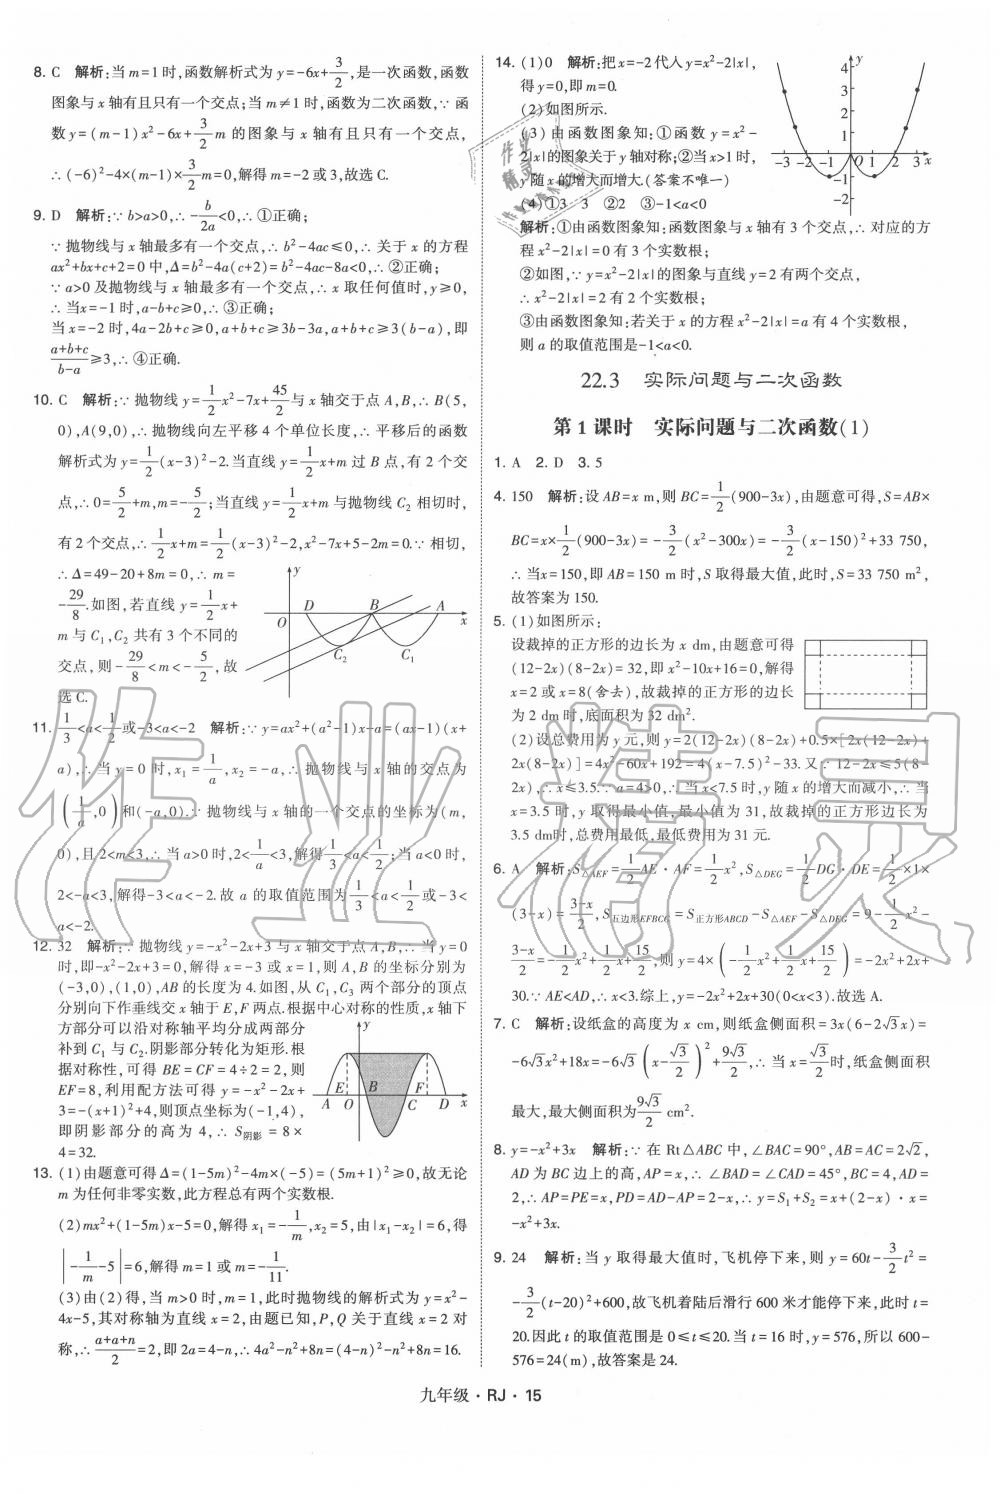 8. C 解析:当 m=1 时,函数解析式为 y=-6x+3/2,是一次函数,函数
图象与 x 轴有且只有一个交点;当 m≠1 时,函数为二次函数,∵函
数 y=(m-1)x²-6x+3/2m 的图象与 x 轴有且只有一个交点,
∴(-6)²-4×(m-1)×3/2m=0,解得 m=-2或3,故选C.
9. D 解析:∵b>a>0,∴-b/2a<0,∴①正确;
∵抛物线与 x 轴最多有一个交点,∴b²-4ac≤0,∴关于 x 的方程
ax²+bx+c+2=0中,Δ=b²-4a(c+2)=b²-4ac-8a<0,∴②正确;
∵a>0及抛物线与 x 轴最多有一个交点,∴x 取任何值时,y≥0,
∴当x=-1时,a-b+c≥0,∴③正确;
当 x=-2 时,4a-2b+c≥0,a+b+c≥3b-3a,a+b+c≥3(b-a),即
(a+b+c)/(b-a)≥3,∴④正确.
10. C 解析:∵抛物线 y=1/2x²-7x+45/2与 x 轴交于点 A,B,∴B(5,
0),A(9,0),∴抛物线向左平移 4 个单位长度,∴平移后的函数
解析式为 y=1/2(x-3)²-2.当直线 y=1/2x+m 过 B 点,有 2 个交
点,∴0=5/2+m,m=-5/2;当直线 y=1/2x+m 与抛物线 C₂ 相切时,
有 2 个交点,∴1/2x+m=1/2(x-3)²-2,x²-7x+5-2m=0.∵相切,
∴Δ=49-20+8m=0,∴m=
-29/8.如图,若直线 y=1/2x+
m 与 C₁,C₂ 共有 3 个不同的
交点,则-29/8<m<-5/2,故
选C.
y
D B A
O x
C₂ C₁
11. 1/3<a<1/2或-3<a<-2 解析:∵y=ax²+(a²-1)x-a=(ax-1)(x+
a),∴当 y=0 时,x₁=1/a,x₂=-a,∴抛物线与 x 轴的交点为
(1/a,0)和(-a,0).∵抛物线与 x 轴的一个交点的坐标为(m,
0),且2<m<3,∴当 a>0时,2<1/a<3,解得1/3<a<1/2;当a<0时,
2<-a<3,解得-3<a<-2.故 a 的取值范围为1/3<a<1/2或-3<
a<-2.
12. 32 解析:∵抛物线 y=-x²-2x+3与 x 轴交于点 A,B,∴当 y=0
时,即-x²-2x+3=0,解得 x=-3或 x=1,则 A,B 的坐标分别为
(-3,0),(1,0),AB的长度为4.如图,从 C₁,C₃ 两个部分的顶点
分别向下作垂线交 x 轴于 E,F 两点.根据中心对称的性质,x 轴下
方部分可以沿对称轴平均分成两部分
补到 C₁ 与 C₂.阴影部分转化为矩形.根
据对称性,可得 BE=CF=4÷2=2,则
EF=8,利用配方法可得 y=-x²-2x+
3=-(x+1)²+4,则顶点坐标为(-1,4),
即阴影部分的高为 4,∴S阴影=8×
4=32.
y
E B F
A O C D x
13. (1)由题意可得Δ=(1-5m)²-4m×(-5)=(5m+1)²≥0,故无论
m 为任何非零实数,此方程总有两个实数根.
(2)mx²+(1-5m)x-5=0,解得 x₁=-1/m,x₂=5,由|x₁-x₂|=6,得
|-1/m-5|=6,解得 m=1或 m=-1/11.
(3)由(2)得,当 m>0时,m=1,此时抛物线的解析式为 y=x²-
4x-5,其对称轴为直线 x=2,由题已知,P,Q 关于直线 x=2 对
称,∴(a+a+n)/2=2,即2a=4-n,∴4a²-n²+8n=(4-n)²-n²+8n=16.
14. (1)0 解析:把x=-2代入y=x²-2|x|,
得y=0,即m=0.
(2)如图所示.
(3)由函数图象知:①函数 y=x²-
2|x|的图象关于y轴对称;②当x>1时,
y随x的增大而增大.(答案不唯一)
(4)①3 3 ②2 ③-1<a<0
y
4
3
2
1
-3 -2 -1 O 1 2 3 x
-1
-2
解析:①由函数图象知:函数图象与 x 轴有 3 个交点,∴对应的方
程 x²-2|x|=0有3个实数根;
②如图,∵y=x²-2|x|的图象与直线 y=2有两个交点,
∴x²-2|x|=2有2个实数根;
③由函数图象知:若关于 x 的方程 x²-2|x|=a 有 4 个实数根,
则 a 的取值范围是-1<a<0.
22.3 实际问题与二次函数
第1课时 实际问题与二次函数(1)
1. A 2. D 3. 5
4. 150 解析:设 AB=x m,则 BC=1/2(900-3x),由题意可得,S=AB×
BC=x×1/2(900-3x)=-3/2(x²-300x)=-3/2(x-150)²+33 750,
∴当x=150,即 AB=150 m 时,S 取得最大值,此时,S=33 750 m²,
故答案为150.
5. (1)如图所示:
设裁掉的正方形的边长为 x dm,由题意可得
(12-2x)(8-2x)=32,即 x²-10x+16=0,解得
x=2或x=8(舍去),故裁掉的正方形的边长
为 2 dm 时,底面积为 32 dm².
(2)设总费用为 y 元,则 y=2(12-2x)(8-2x)+0.5×[2x(12-2x)+
2x(8-2x)]=4x²-60x+192=4(x-7.5)²-33.又∵12-2x≤5(8-
2x),∴x≤3.5.∵a=4>0,∴当x<7.5时,y随x的增大而减小,∴当
x=3.5 时,y 取得最小值,最小值为 31,故裁掉的正方形边长为
3.5 dm时,总费用最低,最低费用为31元.
6. A 解析:S△AEF=1/2AE·AF=1/2x²,S△DEG=1/2DG·DE=1/2×1×
(3-x)=(3-x)/2,S五边形EFBCG=S正方形ABCD-S△AEF-S△DEG=9-1/2x²-
(3-x)/2=-1/2x²+1/2x+15/2,则 y=4×(-1/2x²+1/2x+15/2)=-2x²+2x+
30.∵AE<AD,∴x<3.综上,y=-2x²+2x+30(0<x<3).故选A.
7. C 解析:设纸盒的高度为 x cm,则纸盒侧面积=3x(6-2√3x)=
-6√3x²+18x=-6√3(x-√3/2)²+9√3/2,∴当 x=√3/2时,纸盒侧面积
最大,最大侧面积为9√3/2 cm².
8. y=-x²+3x 解析:∵在 Rt△ABC 中,∠BAC=90°,AB=AC=2√2,
AD 为 BC 边上的高,AP=x,∴∠BAD=∠CAD=45°,BC=4,AD=
2,∴AP=PE=x,PD=AD-AP=2-x,∴y=S₁+S₂=x+(2-x)·x=
-x²+3x.
9. 24 解析:当 y 取得最大值时,飞机停下来,则 y=60t-3/2t²=
-3/2(t-20)²+600,故飞机着陆后滑行 600 米才能停下来,此时t=
20.因此 t 的取值范围是 0≤t≤20.当 t=16 时,y=576,所以 600-
576=24(m),故答案是24.
九年级·RJ·15
作业精灵